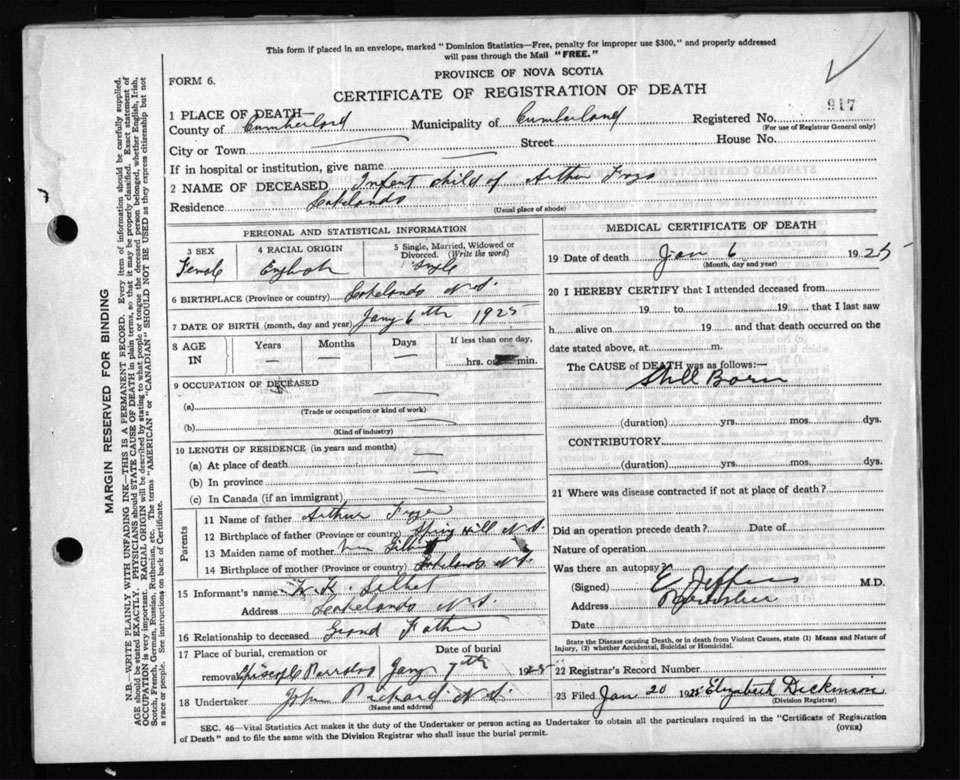 This form if placed in an envelope, marked "Dominion Statistics—Free, penalty for improper use $300," and properly addressed
will pass through the Mail "FREE."
FORM 6.
PROVINCE OF NOVA SCOTIA
CERTIFICATE OF REGISTRATION OF DEATH
917
1 PLACE OF DEATH—
County of Cumberland Municipality of Cumberland Registered No.
(For use of Registrar General only)
City or Town — Street House No.
If in hospital or institution, give name —
2 NAME OF DECEASED Infant child of Arthur
Residence Lakelands
(Usual place of abode)
PERSONAL AND STATISTICAL INFORMATION
3 SEX 4 RACIAL ORIGIN 5 Single, Married, Widowed or Divorced. (Write the word)
Female English Single
6 BIRTHPLACE (Province or country) Lakelands N.S.
7 DATE OF BIRTH (month, day and year) Jany 6th 1925
8 AGE IN Years Months Days If less than one day,
— — — hrs. or min.
9 OCCUPATION OF DECEASED
(a) —
(Trade or occupation or kind of work)
(b) —
(Kind of industry)
10 LENGTH OF RESIDENCE (in years and months)
(a) At place of death —
(b) In province —
(c) In Canada (if an immigrant) —
Parents
11 Name of father Arthur
12 Birthplace of father (Province or country) Spring Hill N.S.
13 Maiden name of mother
14 Birthplace of mother (Province or country) Lakelands N.S.
15 Informant's name
Address Lakelands N.S.
16 Relationship to deceased Grand Father
17 Place of burial, cremation or removal Date of burial
Jany 7th 1925
18 Undertaker John Pickard N.S.
(Name and address)
MEDICAL CERTIFICATE OF DEATH
19 Date of death Jan 6 1925
(Month, day and year)
20 I HEREBY CERTIFY that I attended deceased from
19 to 19 that I last saw
h alive on 19 and that death occurred on the
date stated above, at m.
The CAUSE of DEATH was as follows:—
Still Born
(duration) yrs. mos. dys.
CONTRIBUTORY
(duration) yrs. mos. dys.
21 Where was disease contracted if not at place of death?
Did an operation precede death? Date of
Nature of operation
Was there an autopsy?
(Signed) M.D.
Address
Date
State the Disease causing Death, or in death from Violent Causes, state (1) Means and Nature of
Injury, (2) whether Accidental, Suicidal or Homicidal.
22 Registrar's Record Number
23 Filed Jan 20 1925 Elizabeth Dickinson
(Division Registrar)
SEC. 46—Vital Statistics Act makes it the duty of the Undertaker or person acting as Undertaker to obtain all the particulars required in the "Certificate of Registration
of Death" and to file the same with the Division Registrar who shall issue the burial permit. (OVER)
MARGIN RESERVED FOR BINDING
N.B.—WRITE PLAINLY WITH UNFADING INK—THIS IS A PERMANENT RECORD. Every item of information should be carefully supplied.
AGE should be stated EXACTLY. PHYSICIANS should STATE CAUSE OF DEATH in plain terms, so that it may be properly classified. Exact statement of
OCCUPATION is very important. RACIAL ORIGIN will be described by stating to what people or tongue the deceased person belonged, whether English, Irish,
Scotch, French, German, Russian, Ruthenian, etc. The terms "AMERICAN" or "CANADIAN" SHOULD NOT BE USED as they express citizenship but not
a race or people. See instructions on back of Certificate.